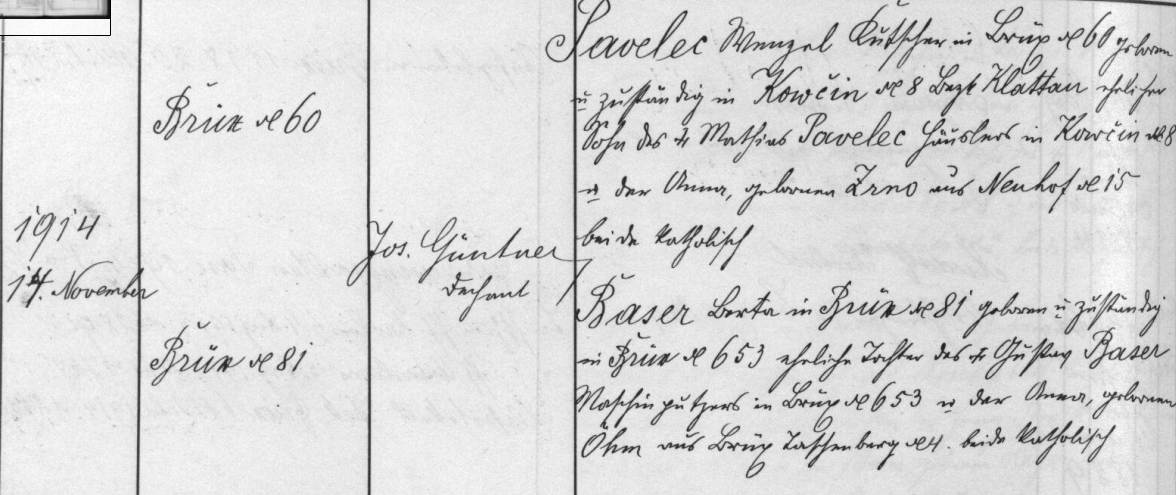 1914
14. November
Brüx № 60
Brüx № 81
Jos. Güntner
Dechant
Pavelec Wenzel Kutscher in Brüx № 60 geboren
u zuständig in Kowčin № 8 Bezk Klattau ehelicher
Sohn des † Mathias Pavelec Häuslers in Kowčin № 8
u der Anna, geborenen Zrno aus Neuhof № 15
beide katholisch
Baser Berta in Brüx № 81 geboren u zuständig
in Brüx № 653 eheliche Tochter des † Gustav Baser
Maschinputzers in Brüx № 653 u der Anna, geborenen
Öhm aus Brüx Taschenberg № 4. beide katholisch